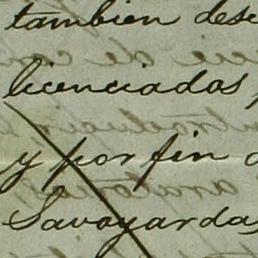 tambien dese
licenciados
y por fin
Savoyardas